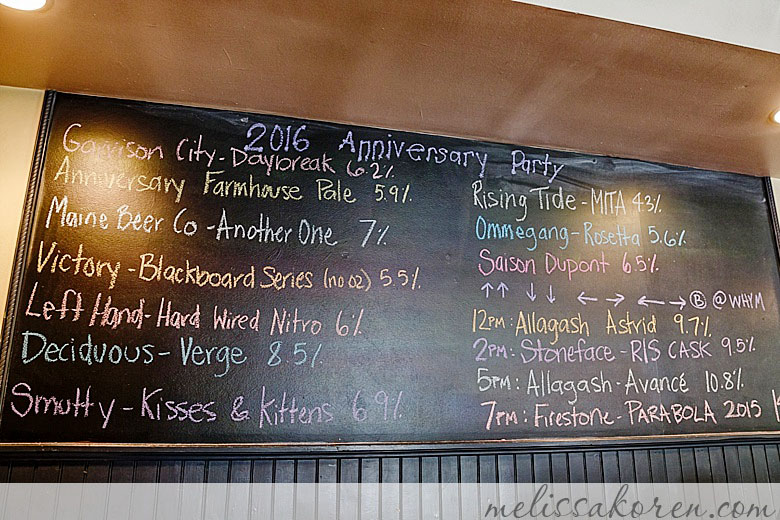 2016 Anniversary Party
Garrison City-Daybreak 6.2%
Anniversary Farmhouse Pale 5.9%
Maine Beer Co-Another One 7%
Victory-Blackboard Series (no 02) 5.5%
Left Hand-Hard Wired Nitro 6%
Deciduous-Verge 8.5%
Smutty-Kisses & Kittens 6.9%
Rising Tide-MITA 4.3%
Ommegang-Rosetta 5.6%
Saison Dupont 6.5%
↑↑ ↓↓ ←→ ←→ Ⓑ @WHYM
12PM: Allagash Astrid 9.7%
2PM: Stoneface-RIS CASK 9.5%
5PM: Allagash-Avancé 10.8%
7PM: Firestone-PARABOLA 2015
melissakoren.com